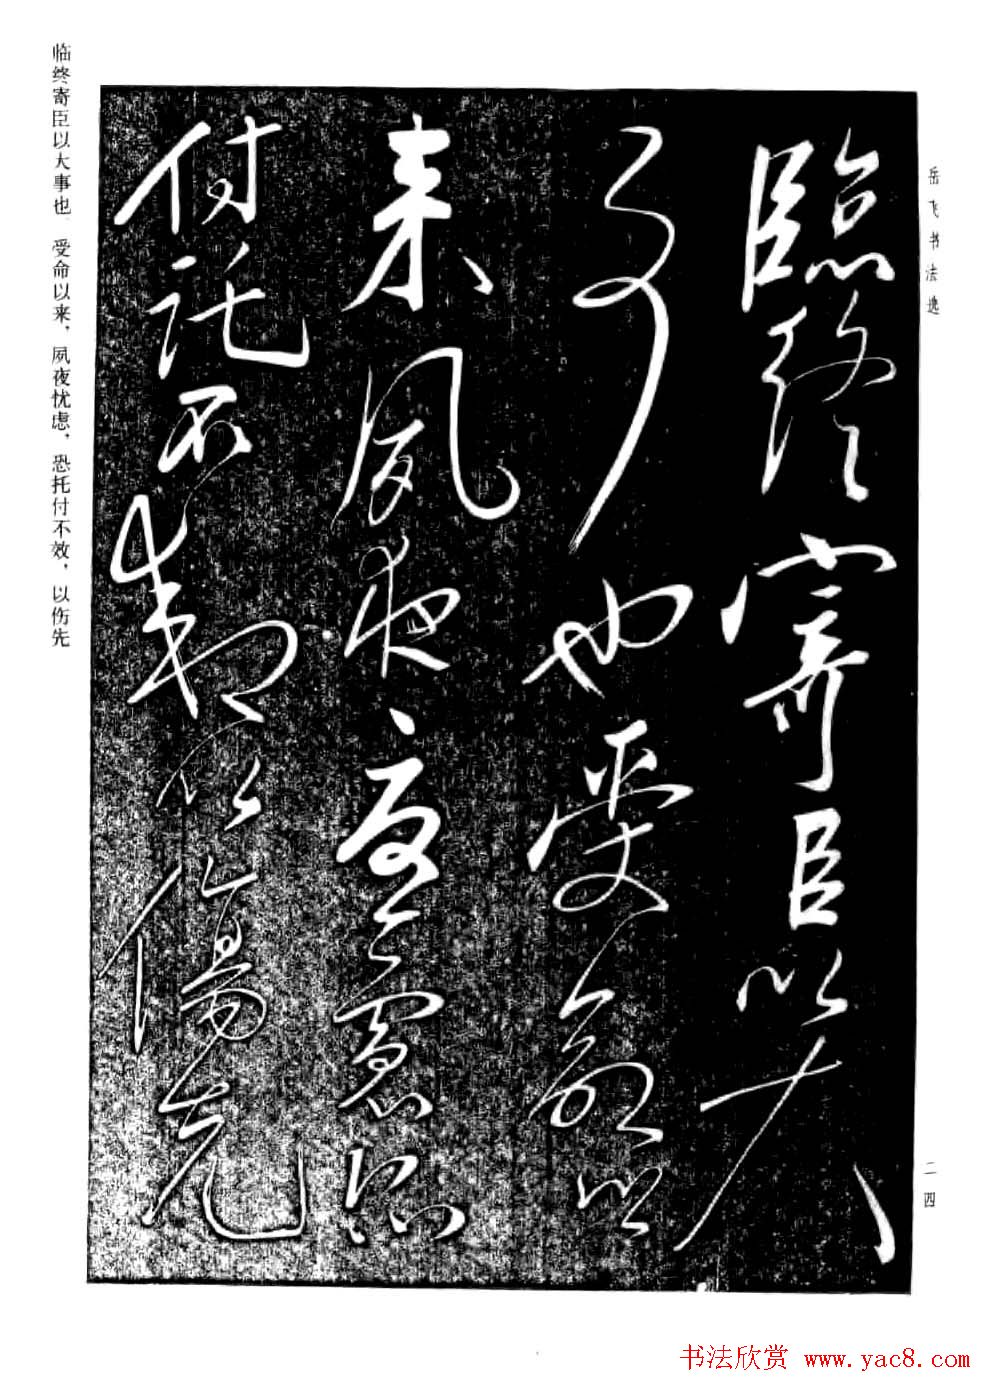 岳飞书法选
二四
臨終寄臣以大
事也受命以
来夙夜憂慮恐
付託不效以傷先
临终寄臣以大事也 受命以来，夙夜忧虑，恐托付不效，以伤先
书法欣赏 www.yac8.com